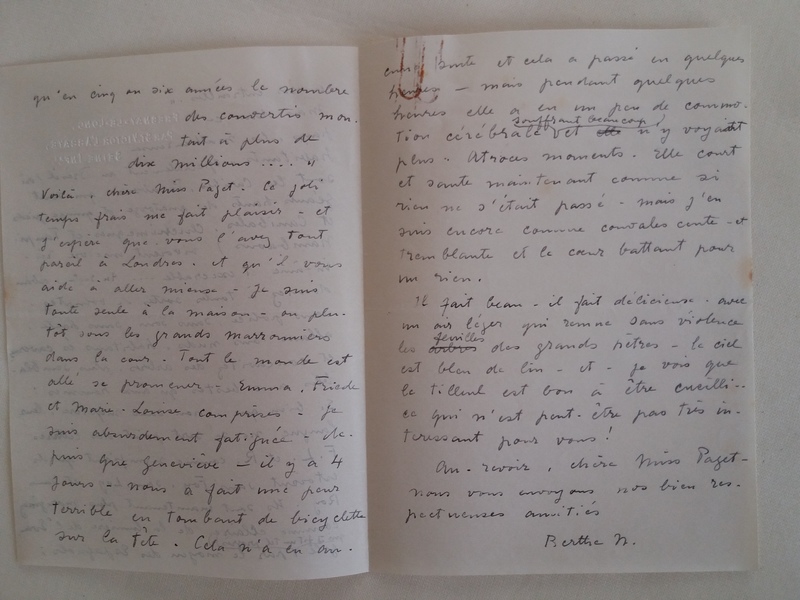 qu'en cinq ou six années le nombre
des convertis mon-
tait à plus de
dix millions .... "
Voilà, chère Miss Paget. Ce joli
temps frais me fait plaisir - et
j'espère que vous l'avez tout
pareil à Londres. et qu'il vous
aide à aller mieux - Je suis
toute seule à la maison - ou plu-
tôt sous les grands marronniers
dans la cour. Tout le monde est
allé se promener - Emma, Friede
et Marie-Louise comprises - Je
suis absurdement fatiguée - de-
puis que Geneviève - il y a 4
jours - nous a fait une peur
terrible en tombant de bicyclette
sur la tête. Cela n'a eu au-
cune suite et cela a passé en quelques
heures - mais pendant quelques
heures elle a eu un peu de commo-
tion cérébrale souffrant beaucoup et n'y voyait
plus. Atroces moments. Elle court
et saute maintenant comme si
rien ne s'était passé - mais j'en
suis encore comme convalescente - et
tremblante et le cœur battant pour
un rien.
Il fait beau - il fait délicieux. avec
un air léger qui remue sans violence
les feuilles des grands hêtres - le ciel
est bleu de lin - et - je vois que
le tilleul est bon à être cueilli -
ce qui n'est peut-être pas très in-
téressant pour vous!
Au-revoir, chère Miss Paget -
nous vous envoyons nos bien res-
pectueuses amitiés
Berthe N.